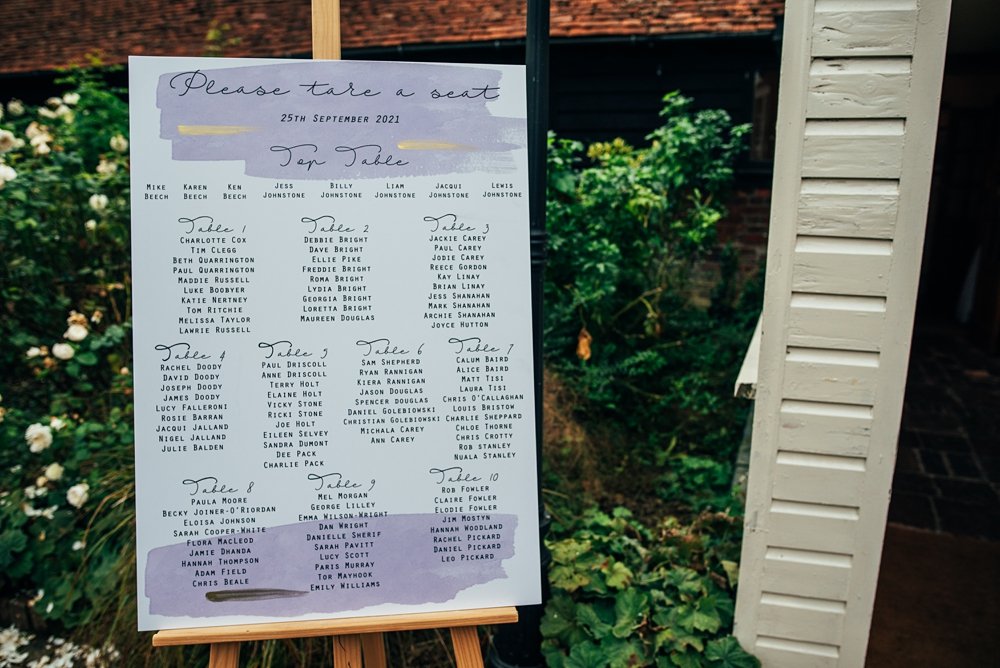 Please take a seat
25th September 2021
Top Table
Mike Beech
Karen Beech
Ken Beech
Jess Johnstone
Billy Johnstone
Liam Johnstone
Jacqui Johnstone
Lewis Johnstone
Table 1
Charlotte Cox
Tim Clegg
Beth Quarrington
Paul Quarrington
Maddie Russell
Luke Boobyer
Katie Nertney
Tom Ritchie
Melissa Taylor
Lawrie Russell
Table 2
Debbie Bright
Dave Bright
Ellie Pike
Freddie Bright
Roma Bright
Lydia Bright
Georgia Bright
Loretta Bright
Maureen Douglas
Table 3
Jackie Carey
Paul Carey
Jodie Carey
Reece Gordon
Kay Linay
Brian Linay
Jess Shanahan
Mark Shanahan
Archie Shanahan
Joyce Hutton
Table 4
Rachel Doody
David Doody
Joseph Doody
James Doody
Lucy Falleroni
Rosie Barran
Jacqui Jalland
Nigel Jalland
Julie Balden
Table 5
Paul Driscoll
Anne Driscoll
Terry Holt
Elaine Holt
Vicky Stone
Ricki Stone
Joe Holt
Eileen Selvey
Sandra Dumont
Dee Pack
Charlie Pack
Table 6
Sam Shepherd
Ryan Rannigan
Kiera Rannigan
Jason Douglas
Spencer douglas
Daniel Golebiowski
Christian Golebiowski
Michala Carey
Ann Carey
Table 7
Calum Baird
Alice Baird
Matt Tisi
Laura Tisi
Chris O'Callaghan
Louis Bristow
Charlie Sheppard
Chloe Thorne
Chris Crotty
Rob stanley
Nuala Stanley
Table 8
Paula Moore
Becky Joiner-O'Riordan
Eloisa Johnson
Sarah Cooper-White
Flora MacLeod
Jamie Dhanda
Hannah Thompson
Adam Field
Chris Beale
Table 9
Mel Morgan
George Lilley
Emma Wilson-Wright
Dan Wright
Danielle Sherif
Sarah Pavitt
Lucy Scott
Paris Murray
Tor Mayhook
Emily Williams
Table 10
Rob Fowler
Claire Fowler
Elodie Fowler
Jim Mostyn
Hannah Woodland
Rachel Pickard
Daniel Pickard
Leo Pickard